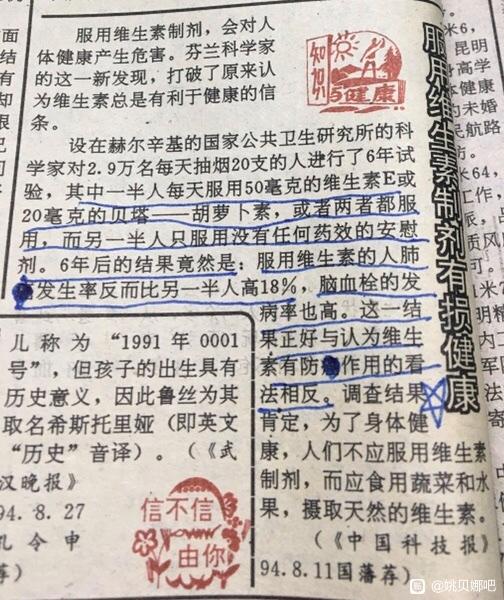 服用维生素制剂有损健康
知识
与健康
服用维生素制剂，会对人
体健康产生危害。芬兰科学家
的这一新发现，打破了原来认
为维生素总是有利于健康的信
条。
设在赫尔辛基的国家公共卫生研究所的科
学家对2.9万名每天抽烟20支的人进行了6年试
验，其中一半人每天服用50毫克的维生素E或
20毫克的贝塔——胡萝卜素，或者两者都服
用，而另一半人只服用没有任何药效的安慰
剂。6年后的结果竟然是：服用维生素的人肺
发生率反而比另一半人高18%，脑血栓的发
病率也高。这一结
果正好与认为维生
素有防 作用的看
法相反。调查结果
肯定，为了身体健
康，人们不应服用维生素
制剂，而应食用蔬菜和水
果，摄取天然的维生素。
（《中国科技报》
94.8.11国藩荐）
儿称为“1991年0001
号”，但孩子的出生具有
历史意义，因此鲁丝为其
取名希斯托里娅（即英文
“历史”音译）。（《武
汉晚报》
94.8.27
孔令申
荐）
信不信
由你
米6，
昆明
身高学
体健康
的未婚
民航路
米64，
工作，
质风
明精
内二
军医
可函
寄
面
结
有
却
限
@姚贝娜吧